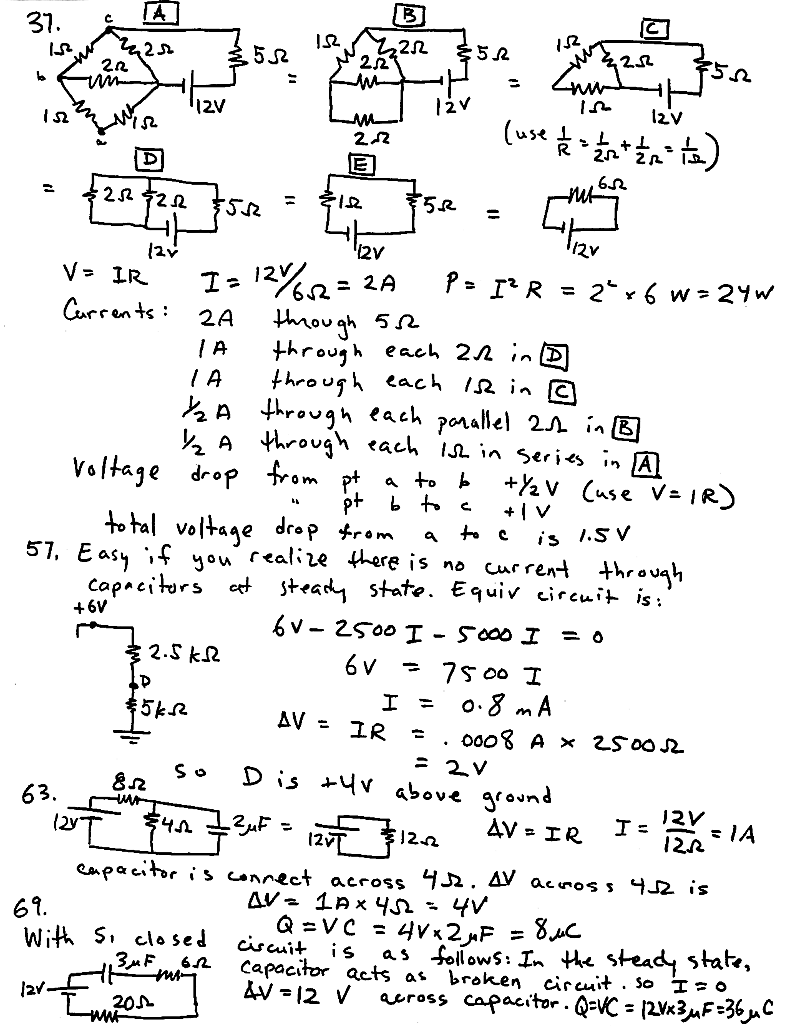 37. A B C
c 1Ω 2Ω 5Ω = 1Ω 2Ω 5Ω = 1Ω 2Ω 5Ω
b 2Ω 2Ω
1Ω 1Ω 12V 12V 1Ω 12V
a 2Ω (use 1/R = 1/2Ω + 1/2Ω = 1/1Ω)
D E
= 2Ω 2Ω 5Ω = 1Ω 5Ω = 6Ω
12V 12V 12V
V = IR I = 12V/6Ω = 2A P = I²R = 2² × 6 W = 24W
Currents: 2A through 5Ω
1A through each 2Ω in D
1A through each 1Ω in C
1/2 A through each parallel 2Ω in B
1/2 A through each 1Ω in series in A
Voltage drop from pt a to b +1/2V (use V=IR)
" pt b to c +1V
total voltage drop from a to c is 1.5V
57. Easy if you realize there is no current through
capacitors at steady state. Equiv circuit is:
+6V 6V - 2500 I - 5000 I = 0
2.5kΩ 6V = 7500 I
D I = 0.8 mA
5kΩ ΔV = IR = .0008 A × 2500Ω
= 2V
so D is +4V above ground
63. 8Ω
12V 4Ω 2μF = 12V 12Ω ΔV = IR I = 12V/12Ω = 1A
capacitor is connect across 4Ω. ΔV across 4Ω is
ΔV = 1A × 4Ω = 4V
69. Q = VC = 4V×2μF = 8μC
With S₁ closed circuit is as follows: In the steady state,
3μF 6Ω capacitor acts as broken circuit. so I = 0
12V 20Ω ΔV = 12 V across capacitor. Q=VC = 12V×3μF=36μC